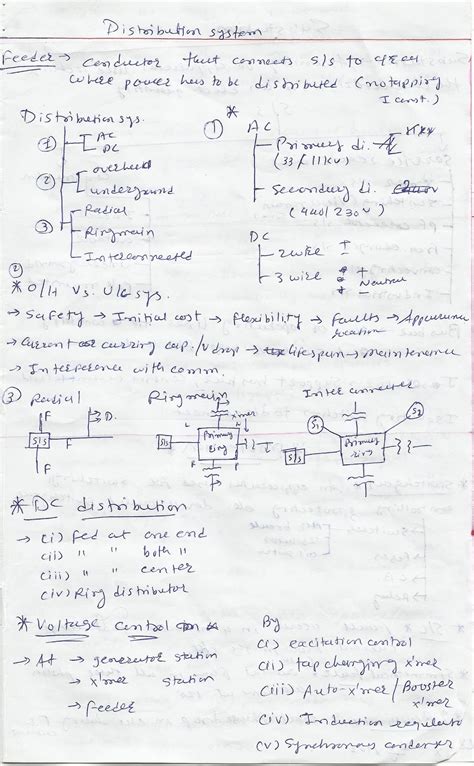 Distribution system
Feeder → Conductor that connects S/S to area
where power has to be distributed (no tapping
I const.)
Distribution sys.
① AC
DC
② overhead
underground
③ Radial
Ringmain
Interconnected
* ① AC
Primary di.
(33/11KV)
Secondary di.
(400/230V)
DC
2 wire + -
3 wire + Neutral -
②
* O/H Vs. U/G sys.
→ Safety → Initial cost → Flexibility → Faults → Appearance
location
→ Current carring cap. / V drop → lifespan → maintenence
→ Interference with comm.
③ Radial
F
D.
S/S
F
F
Ringmain
x'mer
S/S
Primary
Ring
F
F
Inter connected
S1
S2
S/S
Primary
Ring
* DC distribution
→ (i) Fed at one end
(ii) " " both "
(iii) " " center
(iv) Ring distributor
* Voltage control
→ At → generator station
→ x'mer station
→ Feeder
By
(i) excitation control
(ii) tap changing x'mer
(iii) Auto-x'mer / Booster
x'mer
(iv) Induction regulator
(v) Synchronous condenser